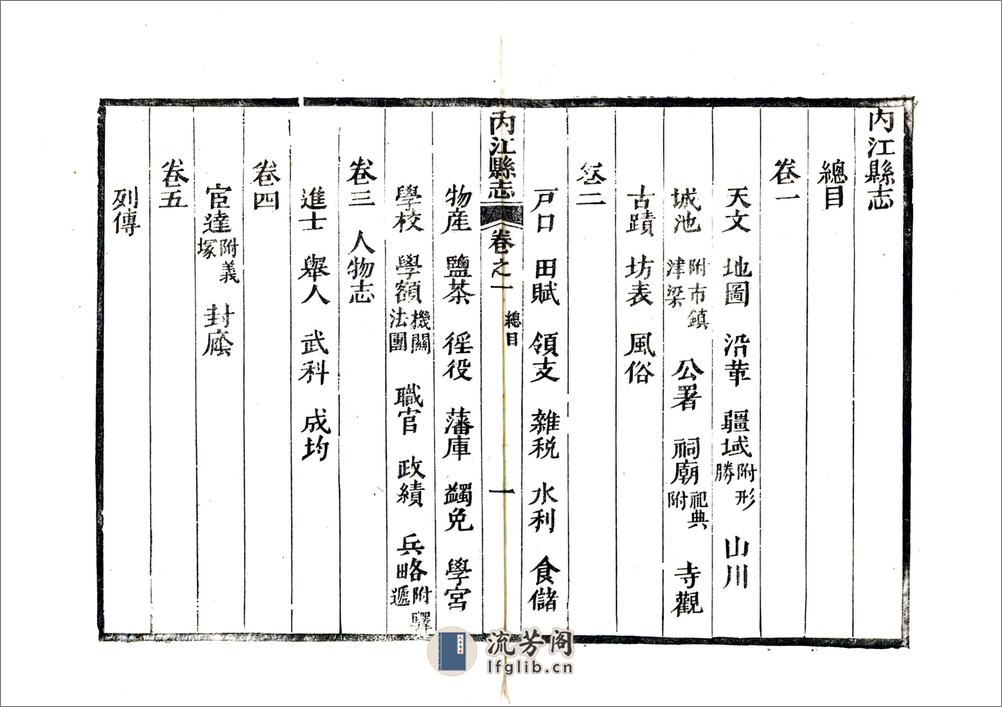 內江縣志
總目
卷一
天文 地圖 沿革 疆域附形勝 山川
城池附市鎮津梁 公署 祠廟祀典附 寺觀
古蹟 坊表 風俗
卷二
戸口 田賦 領支 雜税 水利 食儲
內江縣志 卷之一 總目 一
物産 鹽茶 徭役 藩庫 蠲免 學宮
學校 學額機關法團 職官 政績 兵略附驛遞
卷三 人物志
進士 舉人 武科 成均
卷四
宦達附義塚 封廕
卷五
列傳
流芳阁
lfglib.cn